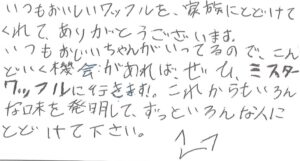 いつもおいしいワッフルを、家族にとどけて
くれて、ありがとうございます。
いつもおじいちゃんがいってるので、こん
どいく機会があれば、ぜひ、ミスター
ワッフルに行きます!。これからもいろん
な味を発明して、ずっといろんな人に
とどけて下さい。